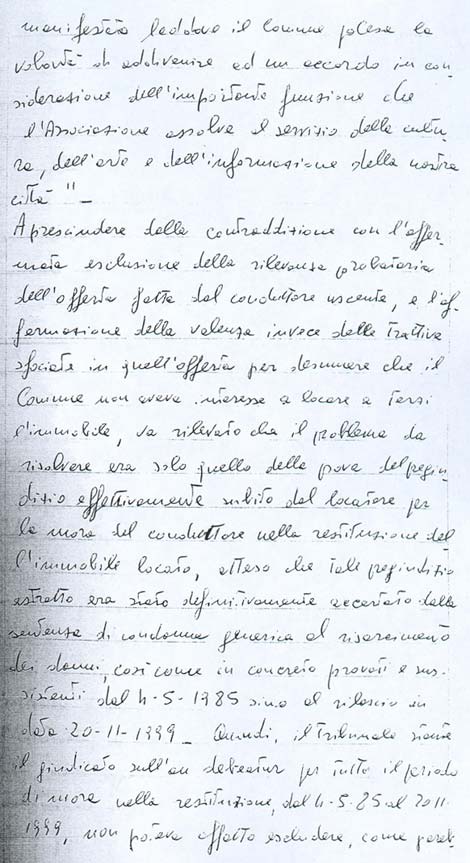 manifestato laddove il Comune palesa la
volontà di addivenire ad un accordo in con
siderazione dell'importante funzione che
l'Associazione assolve al servizio della cultu
ra, dell'arte e dell'informazione della nostra
città" -
A prescindere dalla contraddizione con l'affer
mata esclusione della rilevanza probatoria
dell'offerta fatta dal conduttore uscente, e l'af
fermazione della valenza invece delle trattive
sfociate in quell'offerta per desumere che il
Comune non aveva interesse a locare a terzi
l'immobile, va rilevato che il problema da
risolvere era solo quello della prova del pregiu
dizio effettivamente subito dal locatore per
la mora del conduttore nella restituzione del
l'immobile locato, atteso che tale pregiudizio
astratto era stato definitivamente accertato dalla
sentenza di condanna generica al risarcimento
dei danni, così come in concreto provati e sus-
sistenti dal 4-5-1985 sino al rilascio in
data 20-11-1999 - Quindi, il tribunale stante
il giudicato sull'an debeatur per tutto il periodo
di mora nella restituzione, dal 4.5.85 al 20.11.
1999, non poteva affatto escludere, come